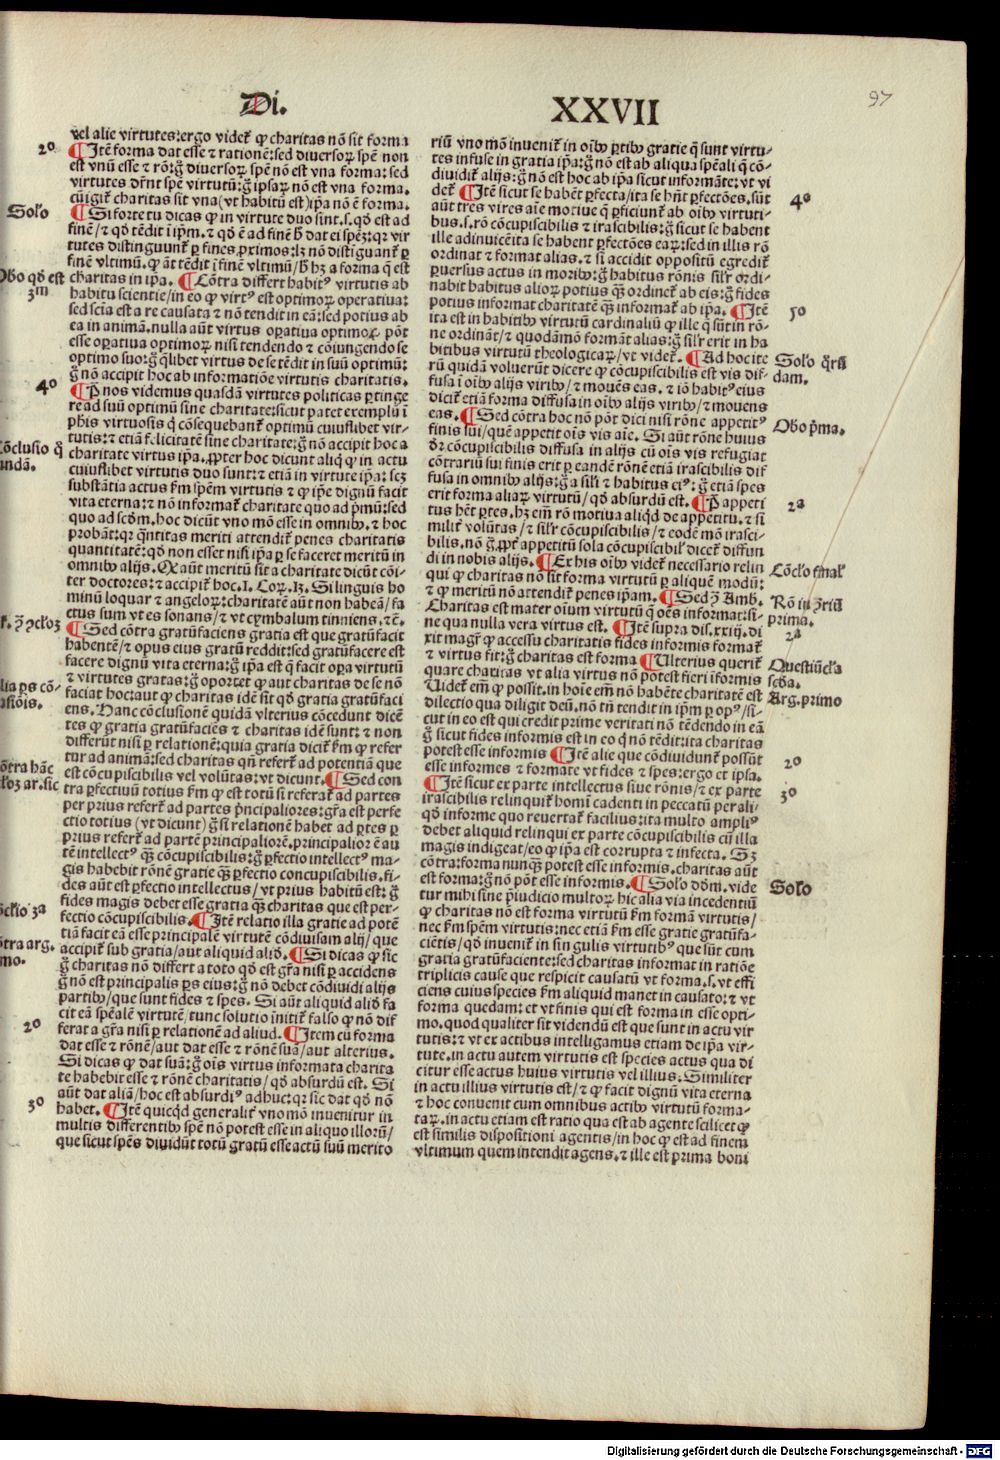 97
Di.
XXVII
vel alie virtutes: ergo videt̃ ꝙ charitas nõ sit forma
¶ Itẽ forma dat esse ⁊ rationẽ: sed diversoꝝ spẽ non
est vnũ esse ⁊ rõ: g̃ diversoꝝ spẽ nõ est vna forma: sed
virtutes dr̃nt spẽ virtutũ: g̃ ipsaꝝ nõ est vna forma.
cũ igit̃ charitas sit vna (vt habitũ est) ip̃a nõ ẽ forma.
¶ Si forte tu dicas ꝙ in virtute duo sint. s. qđ est ad
finẽ / ⁊ qđ tẽdit ĩ ip̃m. ⁊ qđ ẽ ad finẽ h̃ dat ei spẽꝫ: qꝛ vir
tutes distinguunt̃ ꝑ fines ꝓximos: lꝫ nõ distiguant̃ ꝑ
finẽ vltimũ. ꝙ aũt tẽdit ĩ finẽ vltimũ / h̃ hꝫ a forma q̃ est
charitas in ip̃a. ¶ Cõtra differt habitꝰ virtutis ab
habitu scientie / in eo ꝙ virtꝰ est optimoꝝ operativa:
sed scĩa est a re causata ⁊ nõ tendit in eã: sed potius ab
ea in animã. nulla aũt virtus oꝑativa optimoꝝ põt
esse oꝑativa optimoꝝ nisi tendendo ⁊ cõiungendo se
optimo suo: g̃ q̃libet virtus de se tẽdit in suũ optimũ:
g̃ nõ accipit hoc ab informatiõe virtutis charitatis.
¶ P̃ nos videmus quasdã virtutes politicas ꝑtinge
re ad suũ optimũ sine charitate: sicut patet exemplũ ĩ
ph̃is virtuosis q̃ cõsequebant̃ optimũ cuiuslibet vir-
tutis: ⁊ etiã felicitatẽ sine charitate: g̃ nõ accipit hoc a
charitate virtus ip̃a. ꝓpter hoc dicunt aliq̃ ꝙ in actu
cuiuslibet virtutis duo sunt: ⁊ etiã in virtute ip̃a: scꝫ
substãtia actus k̃m spẽm virtutis ⁊ ꝙ ip̃e dignũ facit
vita eterna: ⁊ nõ informat̃ charitate quo ad p̃mũ: sed
quo ad scđm. hoc dicũt vno mõ esse in omnibꝰ. ⁊ hoc
probãt: qꝛ q̃ntitas meriti attendit̃ penes charitatis
quantitatẽ: qđ non esset nisi ip̃a ꝑ se faceret meritũ in
omnibꝰ alijs. Qꝙ aũt meritũ sit a charitate dicũt cõi-
ter doctores: ⁊ accipit̃ hoc. I. Coꝝ. 13. Si linguis ho
minũ loquar ⁊ angeloꝝ: charitatẽ aũt non habeã / fa
ctus sum vt es sonans / ⁊ vt cymbalum tinniens. ⁊ ẽ.
¶ Sed cõtra gratũfaciens gratia est que gratũ facit
habentẽ / ⁊ opus eius gratũ reddit: sed gratũfacere est
facere dignũ vita eterna: g̃ ip̃a est q̃ facit oꝑa virtutũ
⁊ virtutes gratas: g̃ oportet ꝙ aut charitas de se nõ
faciat hoc: aut ꝙ charitas idẽ sit qđ gratia gratũfaci
ens. Hanc cõclusionẽ quidã vlterius cõcedunt dicẽ
tes ꝙ gratia gratũfaciẽs ⁊ charitas idẽ sunt: ⁊ non
differũt nisi ꝑ relationẽ: quia gratia dicit̃ k̃m ꝙ refer
tur ad animã: sed charitas qñ refert̃ ad potentiã que
est cõcupiscibilis vel volũtas: vt dicunt. ¶ Sed con
tra ꝑfectivũ totius k̃m ꝙ est totũ si referat̃ ad partes
per prius refert̃ ad partes p̃ncipaliores: gr̃a est perfe
ctio totius (vt dicunt) g̃ si relationẽ habet ad ꝑtes ꝑ
prius refert̃ ad partẽ principaliorẽ. principalior ẽ au
tẽ intellectꝰ q̃ꝫ cõcupiscibilis: g̃ ꝑfectio intellectꝰ ma-
gis habebit rõnẽ gratie q̃ꝫ ꝑfectio concupiscibilis. fi-
des aũt est ꝑfectio intellectus / vt prius habitũ est: g̃
fides magis debet esse gratia q̃ꝫ charitas que est per-
fectio cõcupiscibilis. ¶ Itẽ relatio illa gratie ad potẽ
tiã facit eã esse principalẽ virtutẽ cõdivisam alijs / que
accipit̃ sub gratia / aut aliquid aliđ. ¶ Si dicas ꝙ sic
g̃ charitas nõ differt a toto qđ est gr̃a nisi ꝑ accidens
g̃ nõ est principalis ꝑs eius: g̃ nõ debet cõdividi alijs
partibꝰ / que sunt fides ⁊ spes. Si aũt aliquid aliđ fa
cit eã spẽalẽ virtutẽ / tunc solutio initit̃ falso ꝙ nõ dif
ferat a gr̃a nisi ꝑ relationẽ ad aliud. ¶ Item cũ forma
dat esse ⁊ rõnẽ / aut dat esse ⁊ rõnẽ suã / aut alterius.
Si dicas ꝙ dat suã: g̃ oĩs virtus informata charita
te habebit esse ⁊ rõnẽ charitatis / qđ absurdũ est. Si
aũt dat aliã / hoc est absurdiꝰ adhuc: qꝛ sic dat qđ nõ
habet. ¶ Itẽ quicq̃d generalit̃ vno mõ invenitur in
multis differentibꝰ spẽ nõ potest esse in aliquo illorũ /
que sicut spẽs dividũt totũ gratũ esse actũ suũ merito
riũ vno mõ invenit̃ in oĩbꝰ ꝑtibꝰ gratie q̃ sunt virtu-
tes infuse in gratia ip̃a: g̃ nõ est ab aliqua spẽali q̃ cõ-
dividit̃ alijs: g̃ nõ est hoc ab ip̃a sicut informãte: vt vi
det̃ ¶ Itẽ sicut se habẽt ꝑfecta / ita se hñt ꝑfectões. sũt
aũt tres vires aĩe motive q̃ ꝑficiunt̃ ab oĩbꝰ virtuti-
bus. s. rõ cõcupiscibilis ⁊ irascibilis: g̃ sicut se habent
ille adinvicẽ ita se habent ꝑfectões eaꝝ: sed in illis rõ
ordinat ⁊ format alias. ⁊ si accidit oppositũ egredit̃
ꝑversus actus in moribꝰ: g̃ habitus rõnis sil̃r ordi-
nabit habitus alioꝝ potius q̃ꝫ ordinet̃ ab eis: g̃ fides
potius informat charitatẽ q̃ꝫ informat̃ ab ip̃a. ¶ Itẽ
ita est in habitibꝰ virtutũ cardinaliũ ꝙ ille q̃ sũt in rõ-
ne ordinãt / ⁊ quodãmõ formãt alias: g̃ sil̃r erit in ha
bitibus virtutũ theologicaꝝ / vt videt̃. ¶ Ad hoc ite
rũ quidã voluerũt dicere ꝙ cõcupiscibilis est vis dif-
fusa ĩ oĩbꝰ alijs viribꝰ / ⁊ movẽs eas. ⁊ iõ habitꝰ eius
dicit̃ etiã forma diffusa in oĩbꝰ alijs viribꝰ / ⁊ movens
eas. ¶ Sed cõtra hoc nõ põt dici nisi rõne appetitꝰ
finis sui / quẽ appetit oĩs vis aĩe. Si aũt rõne huius
dr̃ cõcupiscibilis diffusa in alijs cũ oĩs vis refugiat
cõtrariũ sui finis erit ꝑ eandẽ rõnẽ etiã irascibilis dif
fusa in omnibꝰ alijs: g̃ a sil̃i ⁊ habitus eiꝰ: g̃ etiã spes
erit forma aliaꝝ virtutũ / qđ absurdũ est. ¶ P̃ appeti
tus hẽt ꝑtes. hꝫ em̃ rõ motiva aliq̃d de appetitu. ⁊ si
milit̃ volũtas / ⁊ sil̃r cõcupiscibilis / ⁊ eodẽ mõ irasci-
bilis. nõ g̃ ꝓpt̃ appetitũ sola cõcupiscibil̃ dicet̃ diffun
di in nobis alijs. ¶ Ex his oĩbꝰ videt̃ necessario relin
qui ꝙ charitas nõ sit forma virtutũ ꝑ aliquẽ modũ:
⁊ ꝙ meritũ nõ attendit̃ penes ip̃am. ¶ Sed ꝯ̃ Amb.
Charitas est mater oĩum virtutũ q̃ oẽs informat: si-
ne qua nulla vera virtus est. ¶ Itẽ supra dis. xxiij. di
xit magr̃ ꝙ accessu charitatis fides informis format̃
⁊ virtus fit: g̃ charitas est forma ¶ Vlterius querit̃
quare charitas vt alia virtus nõ potest fieri informis
Videt̃ em̃ ꝙ possit. in hoĩe em̃ nõ habẽte charitatẽ est
dilectio qua diligit deũ. nõ tñ tendit in ip̃m ꝑ opꝰ / si-
cut in eo est qui credit prime veritati nõ tẽdendo in eã
g̃ sicut fides informis est in eo q̃ nõ tẽdit: ita charitas
potest esse informis ¶ Itẽ alie que cõdividunt̃ possũt
esse informes ⁊ formate vt fides ⁊ spes: ergo et ipsa.
¶ Itẽ sicut ex parte intellectus sive rõnis / ⁊ ex parte
irascibilis relinquit̃ homĩ cadenti in peccatũ per ali-
qđ informe quo revertat̃ facilius: ita multo ampliꝰ
debet aliquid relinqui ex parte cõcupiscibilis cũ illa
magis indigeat / eo ꝙ ipsa est corrupta ⁊ infecta. Sꝫ
cõtra: forma nunq̃ꝫ potest esse informis. charitas aũt
est forma: g̃ nõ põt esse informis. ¶ Sol̃o dõm. vide
tur mihi sine p̃iudicio multoꝝ hic alia via incedentiũ
ꝙ charitas nõ est forma virtutũ k̃m formã virtutis /
nec k̃m spẽm virtutis: nec etiã k̃m esse gratie gratũfa-
ciẽtis / qđ invenit̃ in singulis virtutibꝰ que sũt cum
gratia gratũfaciente: sed charitas informat in ratiõe
triplicis cause que respicit causatũ vt forma. s. vt effi
ciens cuius species k̃m aliquid manet in causato: ⁊ vt
forma quedam: et vt finis qui est forma in esse opti-
mo. quod qualiter sit videndũ est que sunt in actu vir
tutis: ⁊ vt ex actibus intelligamus etiam de ip̃a vir-
tute. in actu autem virtutis est species actus qua di
citur esse actus huius virtutis vel illius. Similiter
in actu illius virtutis est / ⁊ ꝙ facit dignũ vita eterna
⁊ hoc convenit cum omnibus actibꝰ virtutũ forma-
taꝝ. in actu etiam est ratio qua est ab agente scilicet ꝙ
est similis dispositioni agentis / in hoc ꝙ est ad finem
vltimum quem intendit agens. ⁊ ille est prima boni
20
Sol̃o
Obo qđ est
3m
40
Cõclusio q̃
undã.
20
30
40
50
Sol̃o q̃rũ
dam.
Obo p̃ma.
2a
Cõcl̃o final̃
Rõ in ꝯ̃riũ
prima.
2a
Questiũcl̃a
scđa.
Arg. primo
20
30
Sol̃o
Digitalisierung gefördert durch die Deutsche Forschungsgemeinschaft - DFG